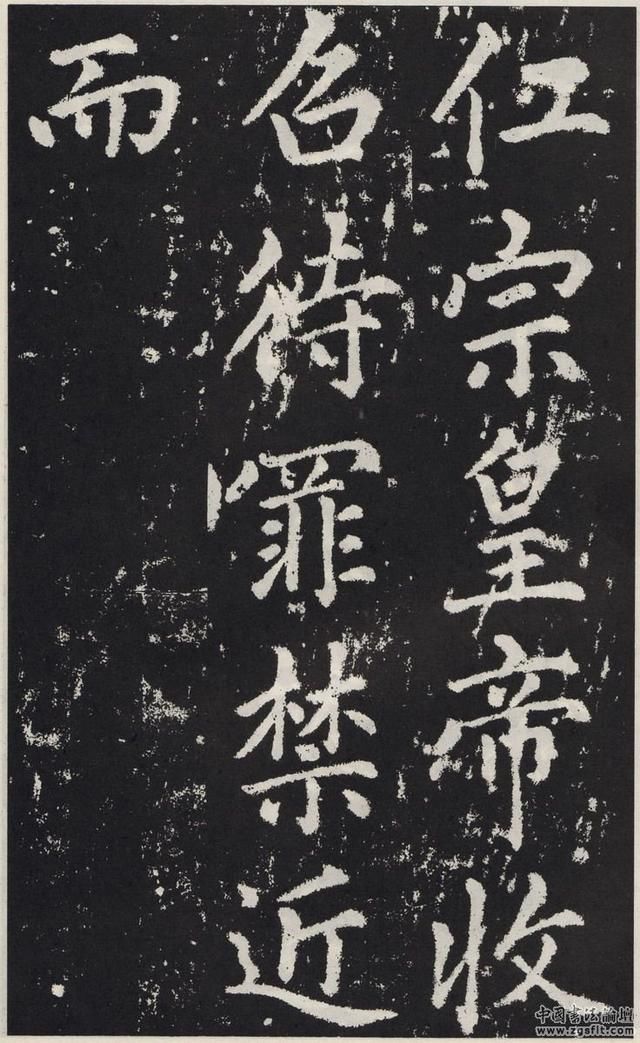 仁宗皇帝收
召待罪禁近
而
中国书法论坛
www.zgsflt.com